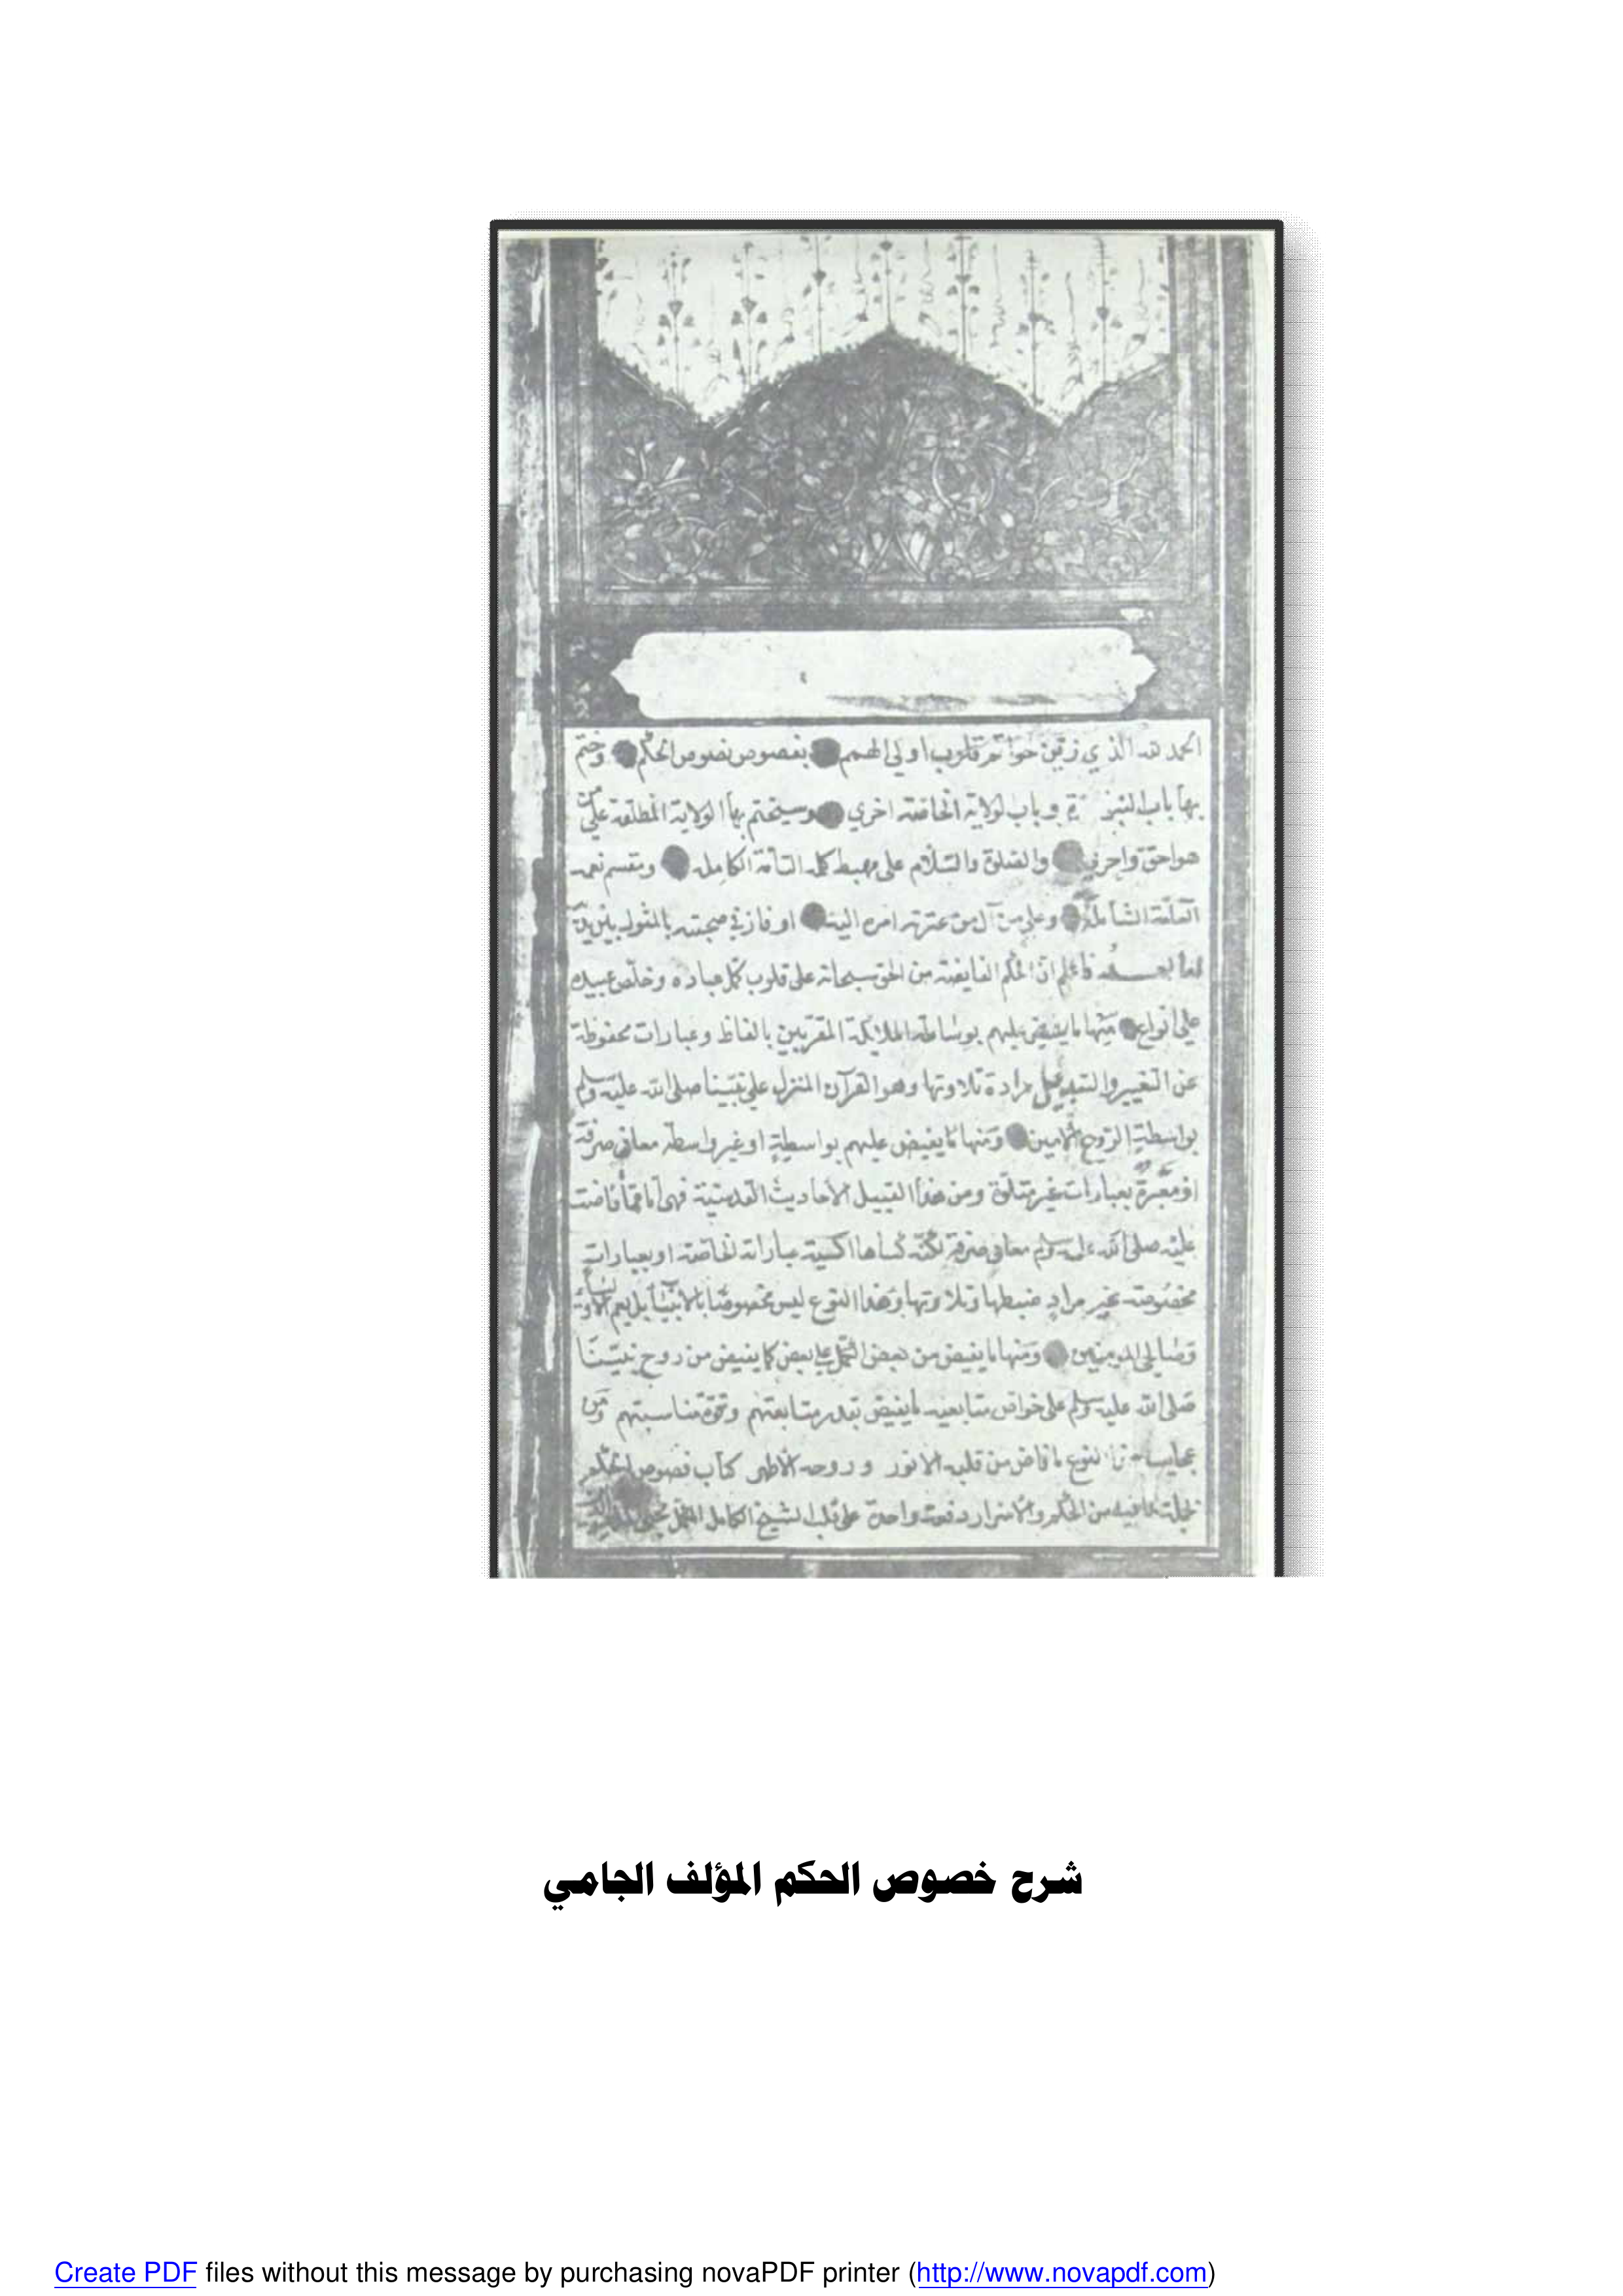 الحمد لله الذي زين خواتم قلوب اولي الهمم بفصوص نصوص الحكم وختم
بها باب النبوة و باب لولاية الخاصة اخري وسيختم بها الولاية المطلقة علي من
هو احق واحري والصلوة والسلام على مهبط كلمه التامة الكاملة ومقسم نعمه
العامة الشاملة وعلي من آل من عترته امره اليه او فاز في صحبته بالمثول بين يديه
اما بعد فاعلم ان الحكم الفايضة من الحق سبحانه على قلوب كمل عباده وخلص عبيده
علي انواع منها ما يفيض عليهم بوساطة الملايكة المقربين بالفاظ وعبارات محفوظة
عن التغيير والتبديل مرادة تلاوتها وهو القرآن المنزل علي نبينا صلى الله عليه وسلم
بواسطة الروح الامين ومنها ما يفيض عليهم بواسطة او غير واسطة معاني صرفة
او معبرة بعبارات غير متلوة ومن هذا القبيل الاحاديث القدسية فهي اما فاضت
عليه صلى الله عليه وسلم معاني صرفة لكنه كساها اكسية عباراته الخاصة او بعبارات
مخصوصة غير مراد ضبطها وتلاوتها وهذا النوع ليس مخصوصا بالانبياء بل يعم الاولياء
وصالحي المومنين ومنها ما يفيض من بعض الكمل علي بعض كما يفيض من روح نبينا
صلى الله عليه وسلم على خواص متابعيه ما يفيض بقدر متابعتهم وقوة مناسبتهم ومن
النوع ما فاض من قلبه الانور وروحه الاطهر كتاب فصوص الحكم
بما فيه من الحكم والاسرار دفعة واحدة على قلب الشيخ الكامل المكمل محيي
شرح خصوص الحكم المؤلف الجامي
Create PDF files without this message by purchasing novaPDF printer (http://www.novapdf.com)